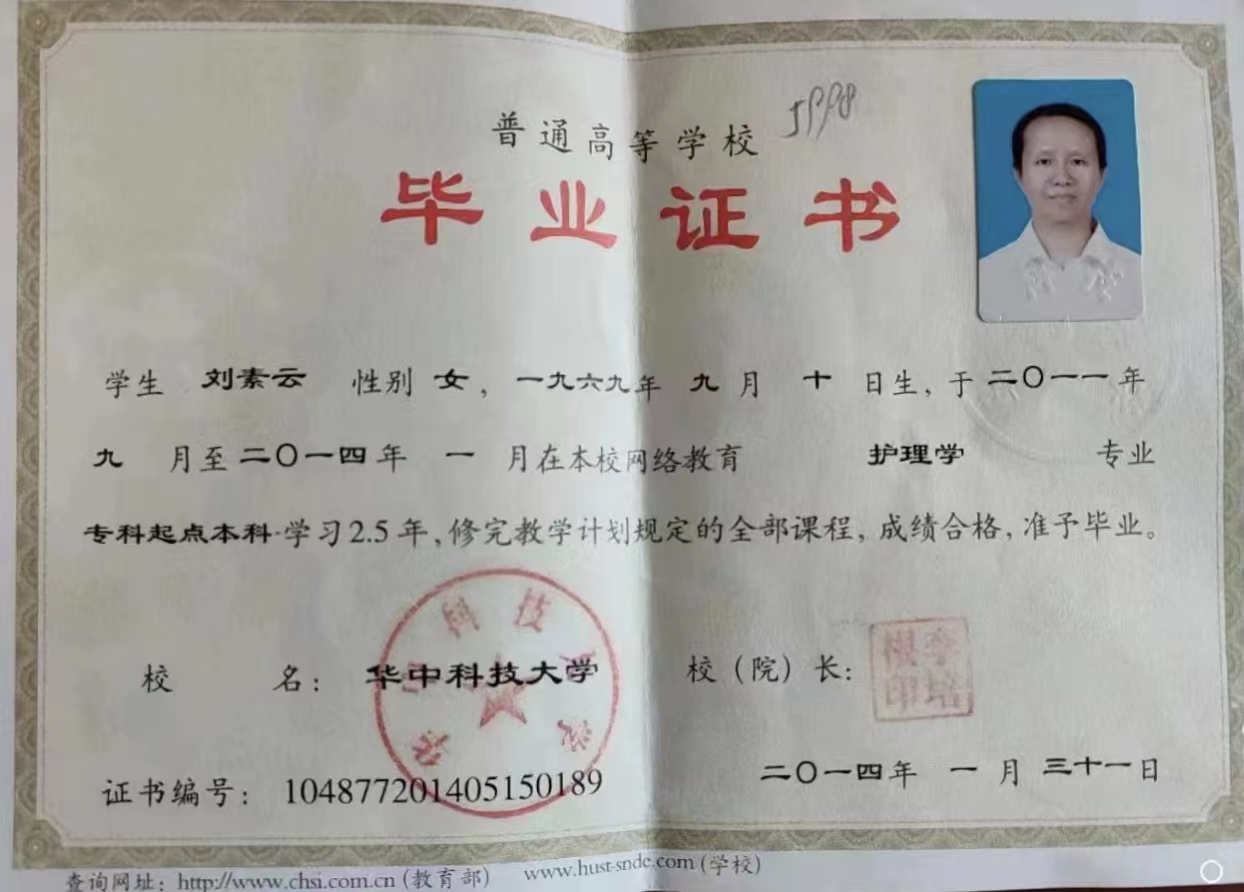 普通高等学校
毕业证书
学生 刘素云 性别 女，一九六九年 九 月 十 日生，于二〇一一年
九 月至二〇一四年 一 月在本校网络教育 护理学 专业
专科起点本科 学习2.5年，修完教学计划规定的全部课程，成绩合格，准予毕业。
校 名：华中科技大学 校（院）长：
华中科技大学
李培根印
证书编号：104877201405150189 二〇一四年 一 月 三十一日
查询网址：http://www.chsi.com.cn（教育部） www.hust-snde.com（学校）